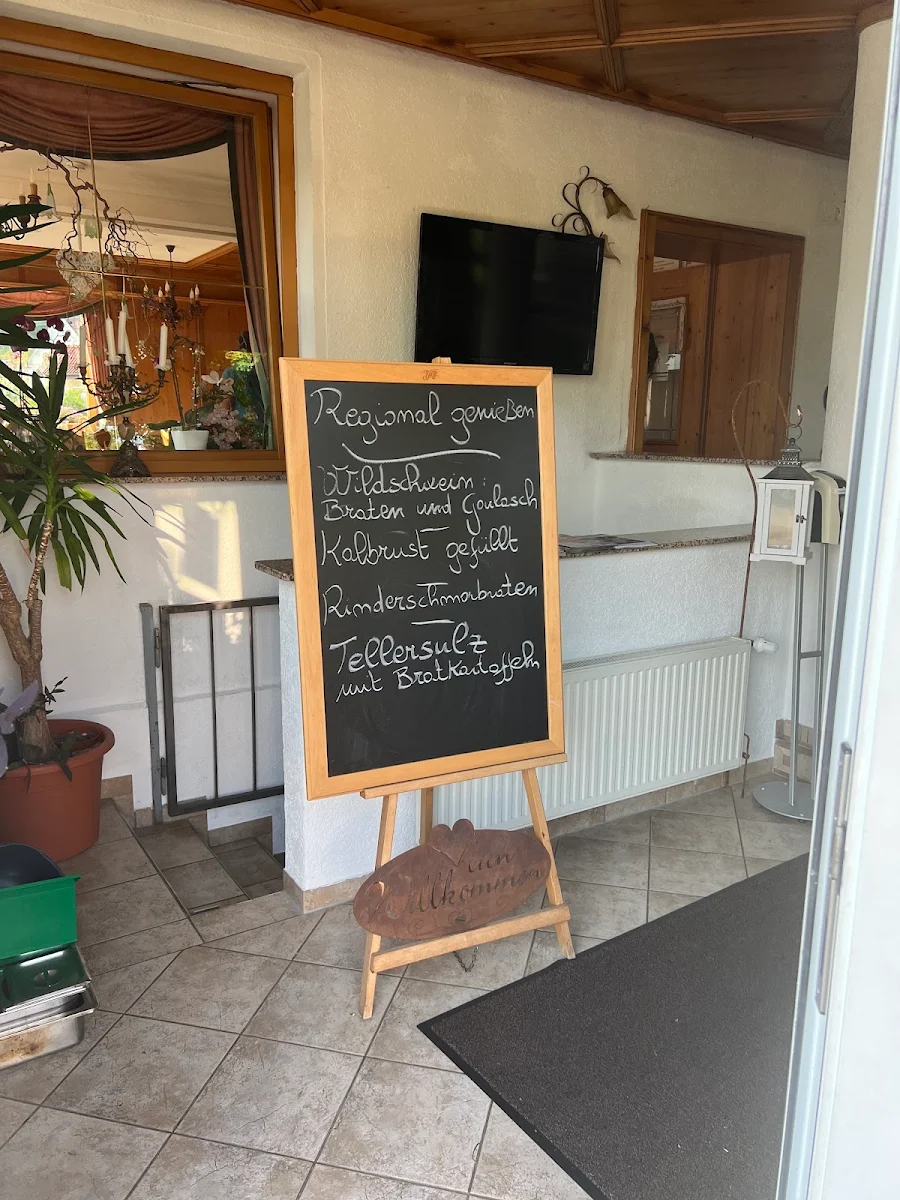 Regional genießen
Wildschwein:
Braten und Goulasch
Kalbrust gefüllt
Rinderschmorbraten
Tellersulz
mit Bratkartoffeln
Willkommen